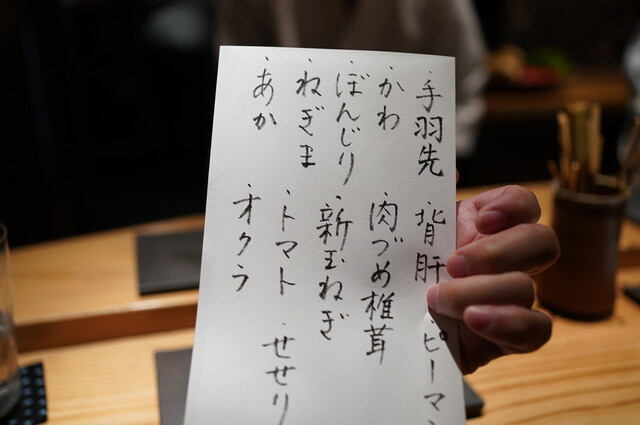 手羽先
背肝
ピーマン
かわ
肉づめ椎茸
ぼんじり
新玉ねぎ
ねぎま
トマト
せせり
あか
オクラ